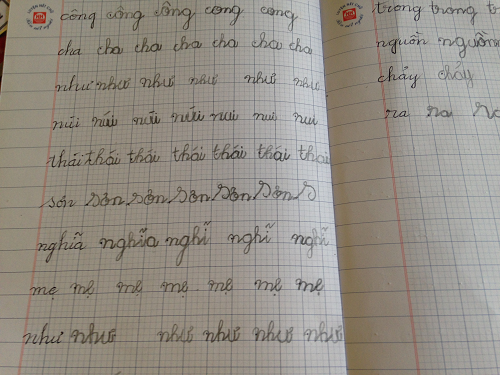 công công công cong cong
cha cha cha cha cha cha cha
như như như như như như
núi núi núi núi nui nui nui
thái thái thái thái thái thái thai
sơn sơn sơn sơn sơn sơn
nghĩa nghĩa nghĩ nghĩ nghĩ
mẹ mẹ mẹ mẹ mẹ mẹ mẹ
như như như như như như
trong trong
nguồn nguồn
chảy chảy
ra ra